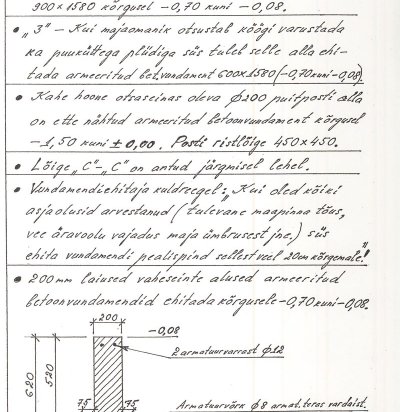 900×1580 kõrgusel −0,70 kuni −0,08.
• „3" – Kui majaomanik otsustab köögi varustada
ka puuküttega pliidiga siis tuleb selle alla ehi-
tada armeeritud bet.vundament 600×1580 (−0,70 kuni −0,08).
• Kahe hoone otsaseinas oleva ϕ200 puitposti alla
on ette nähtud armeeritud betoonvundament kõrgusel
−1,50 kuni ±0,00. Posti ristlõige 450×450.
• Lõige „C"–„C" on antud järgmisel lehel.
• Vundamendiehitaja kuldreegel: „Kui oled kõiki
asjaolusid arvestanud (tulevane maapinna tõus,
vee äravoolu vajadus maja ümbrusest jne.) siis
ehita vundamendi pealispind sellest veel 20cm kõrgemale."!
• 200mm laiused vaheseinte alused armeeritud
betoonvundamendid ehitada kõrgusele −0,70 kuni −0,08.
200
−0,08
2 armatuurvarrast ϕ12
620
520
75
75
Armatuurvõrk ϕ8 armat. teras vardaist.